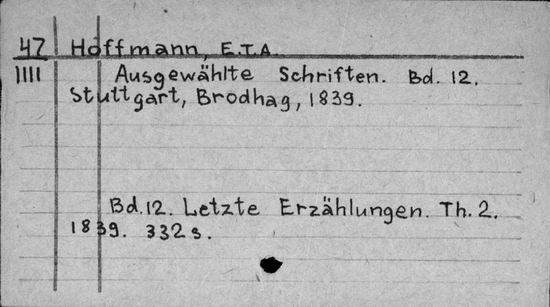 47 Hoffmann, E.T.A.
1111 Ausgewählte Schriften. Bd. 12.
Stuttgart, Brodhag, 1839.
Bd.12. Letzte Erzählungen. Th.2.
1839. 332 s.